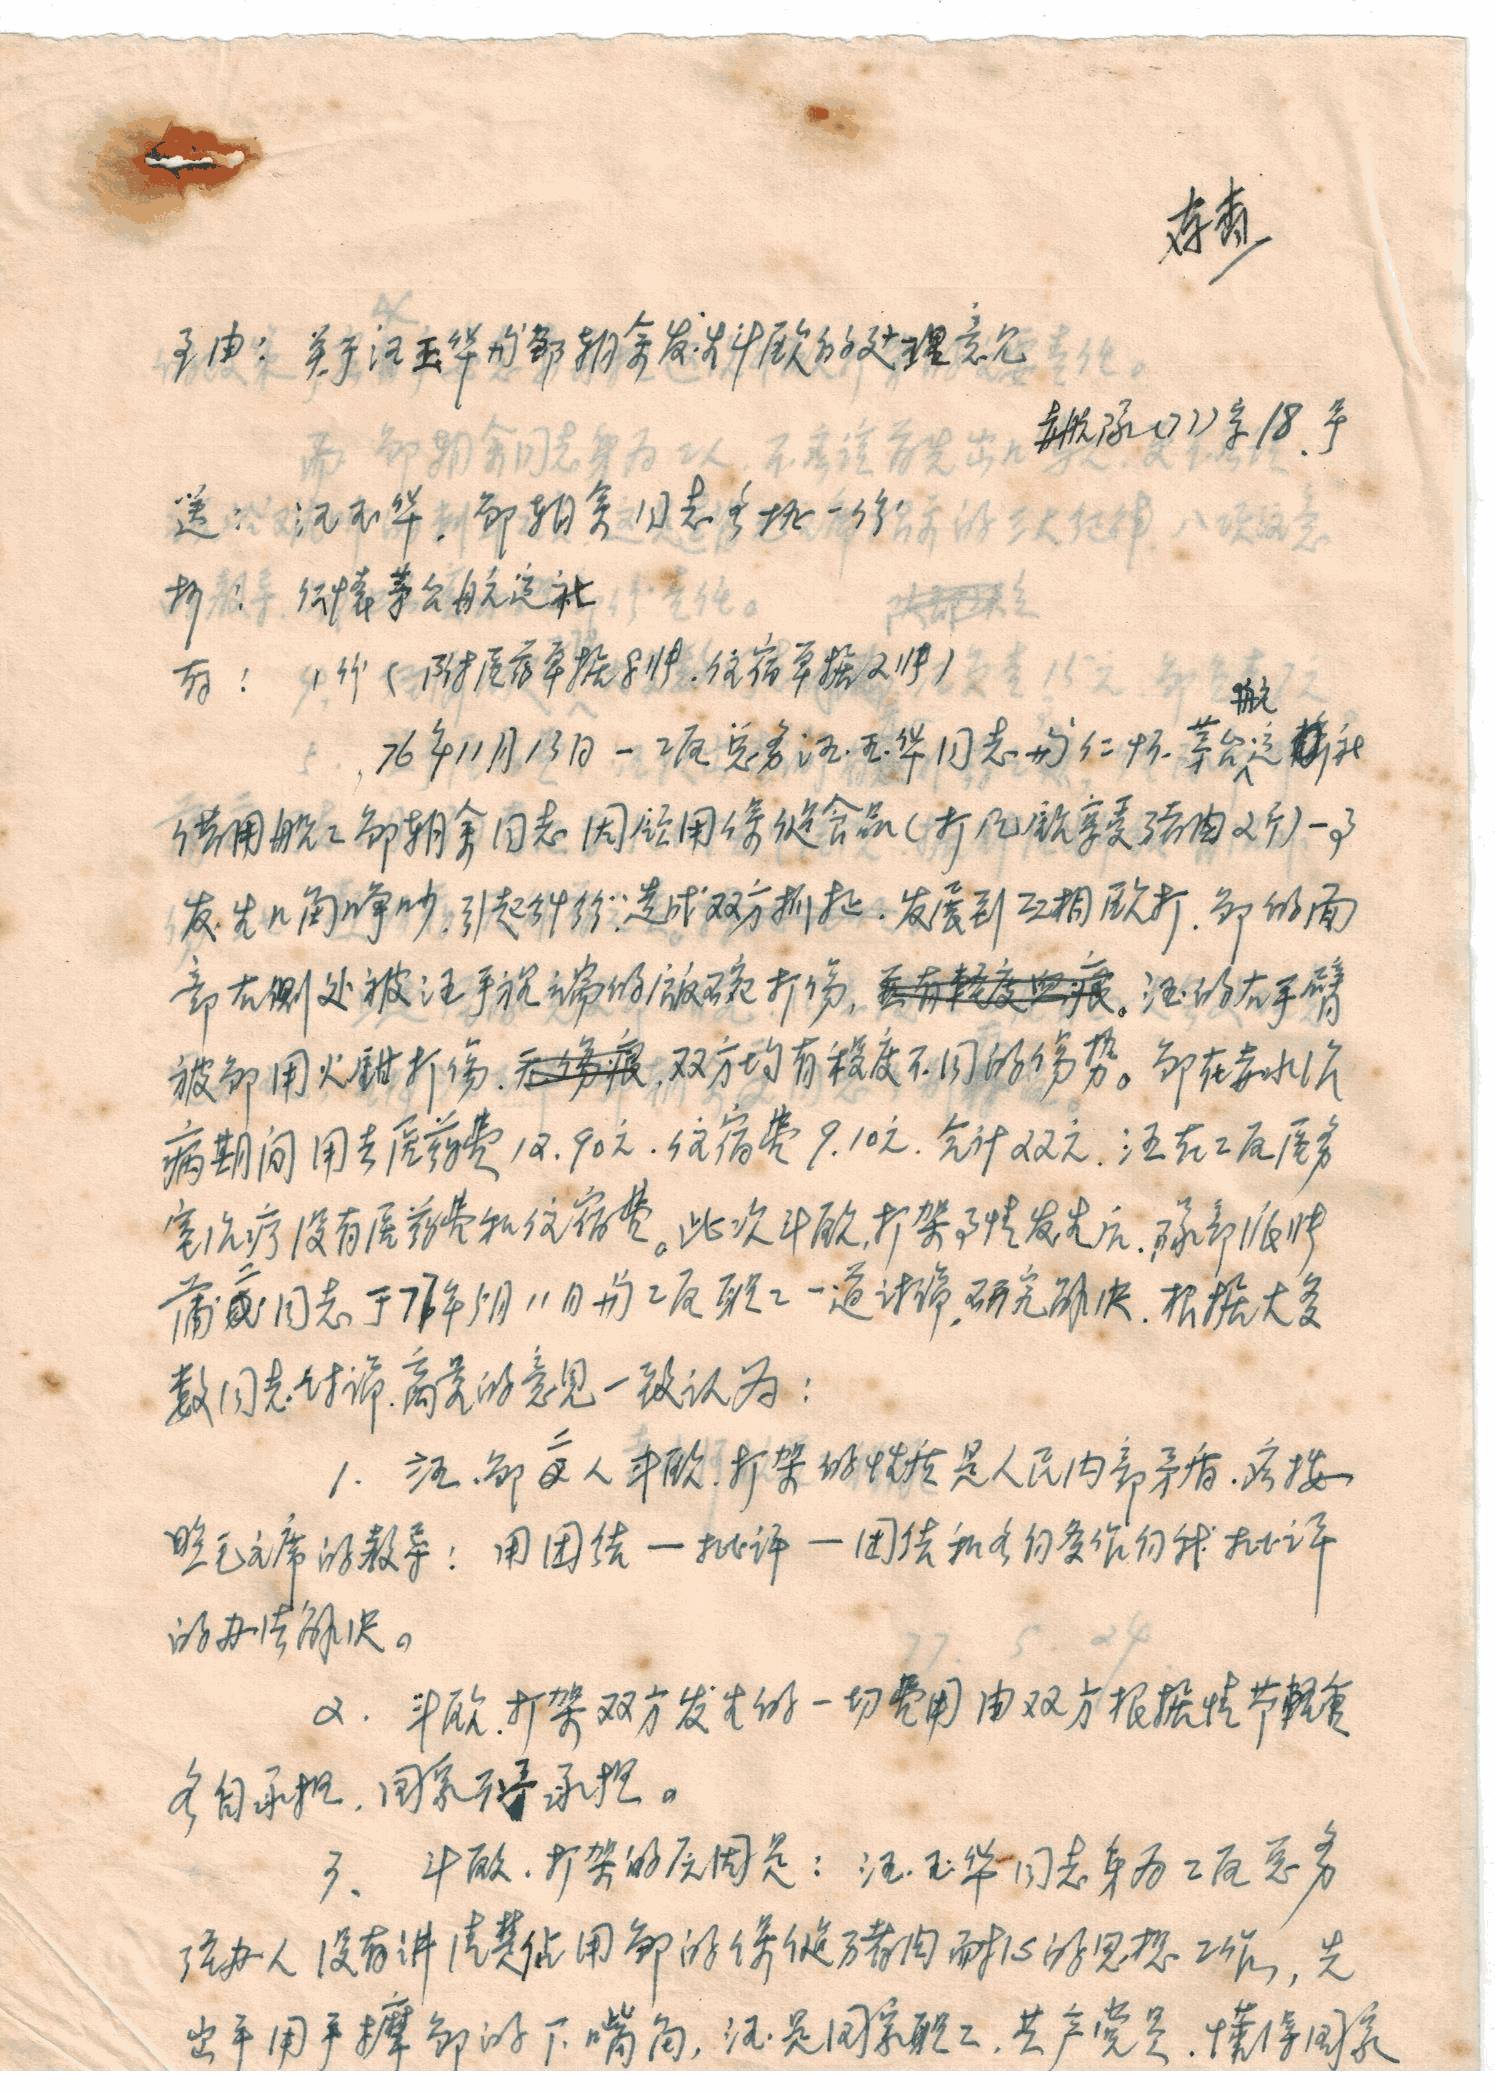 存查
事由：关于汪玉华与邹朝余发生斗殴的处理意见
赤航队(77)字18号
送：汪玉华、邹朝余同志各执一份
抄：仁怀茅台航运社
存：1份（附医药单据8帐、住宿单据2帐）
76年11月13日一工区总务汪玉华同志与仁怀茅台航运社
借用船工邹朝余同志因领用保健食品（打几顿享受猪肉2斤）一事
发生口角争吵，引起纠纷，造成双方抓扯，发展到互相殴打，邹的面
部右侧处被汪手袍端的饭碗打伤，至有轻度血痕。汪的右手臂
被邹用火钳打伤，无伤痕，双方均有程度不同的伤势。邹在赤水治
病期间用去医药费12.90元，住宿费9.10元，合计22元，汪在工区医务
室治疗没有医药费和住宿费。此次斗殴，打架事情发生后，队部派
蒲同志于77年5月11日与工区职工一道讨论，研究解决，根据大多
数同志讨论，商量的意见一致认为：
1. 汪、邹二人斗殴，打架的性质是人民内部矛盾，应按
照毛主席的教导：用团结—批评—团结和各自多作自我批评
的办法解决。
2. 斗殴，打架双方发生的一切费用由双方根据情节轻重
各自承担，国家不承担。
3、斗殴、打架的原因是：汪玉华同志身为工区总务
经办人没有讲清楚佔用邹的保健猪肉耐心的思想工作，先
出手用手摩邹的下嘴角，汪是国家职工，共产党员，懂得国家